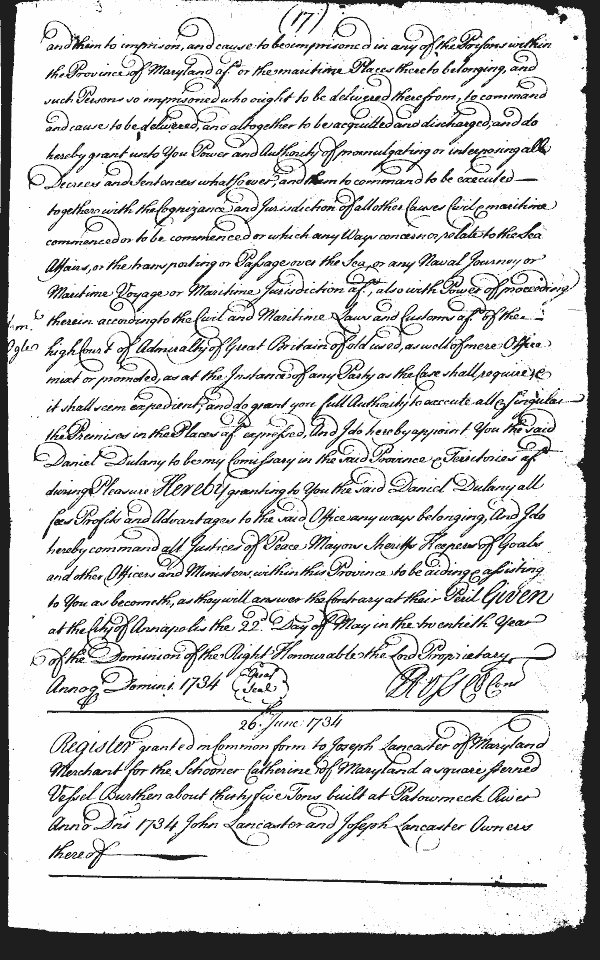 (17)
and them to imprison, and cause to be imprisoned in any of the Prisons within
the Province of Maryland afd. or the maritime Places thereto belonging, and
such Persons so imprisoned who ought to be delivered therefrom, to command
and cause to be delivered, and altogether to be acquitted and discharged, and do
hereby grant unto You Power and Authority of promulgating or interposing all
Decrees and Sentences whatsoever, and them to command to be executed —
together with the Cognizance and Jurisdiction of all other Causes Civil & maritime
commenced or to be commenced or which any Ways concern or relate to the Sea
Affairs, or the transporting or Passage over the Sea, or any Naval Journey or
Maritime Voyage or Maritime Jurisdiction afd., also with Power of proceeding
therein according to the Civil and Maritime Laws and Customs afd. of the —
high Court of Admiralty of Great Britain of old used, as well of mere Office
mixt or promoted, as at the Instance of any Party as the Case shall require, &
it shall seem expedient, and do grant you full Authority to execute all & singular
the Premises in the Places afd. expressed, And I do hereby appoint You the said
Daniel Dulany to be my Comissary in the said Province & Territories afd.
during Pleasure Hereby granting to You the said Daniel Dulany all
fees Profits and Advantages to the said Office any ways belonging, And I do
hereby command all Justices of Peace Mayors Sheriffs Keepers of Goals
and other Officers and Ministers, within this Province to be aiding & assisting
to You as becometh, as they will answer the Contrary at their Peril Given
at the City of Annapolis the 22d. Day of May in the twentieth Year
of the Dominion of the Right Honourable the Lord Proprietary
Annoq Domini 1734
Great
Seal
26th. June 1734
Register granted in Common form to Joseph Lancaster of Maryland
Merchant for the Schooner Catherine of Maryland a square sterned
Vessel Burthen about thirty five Tons built at Patowmeck River
Anno Dni 1734 John Lancaster and Joseph Lancaster Owners
thereof